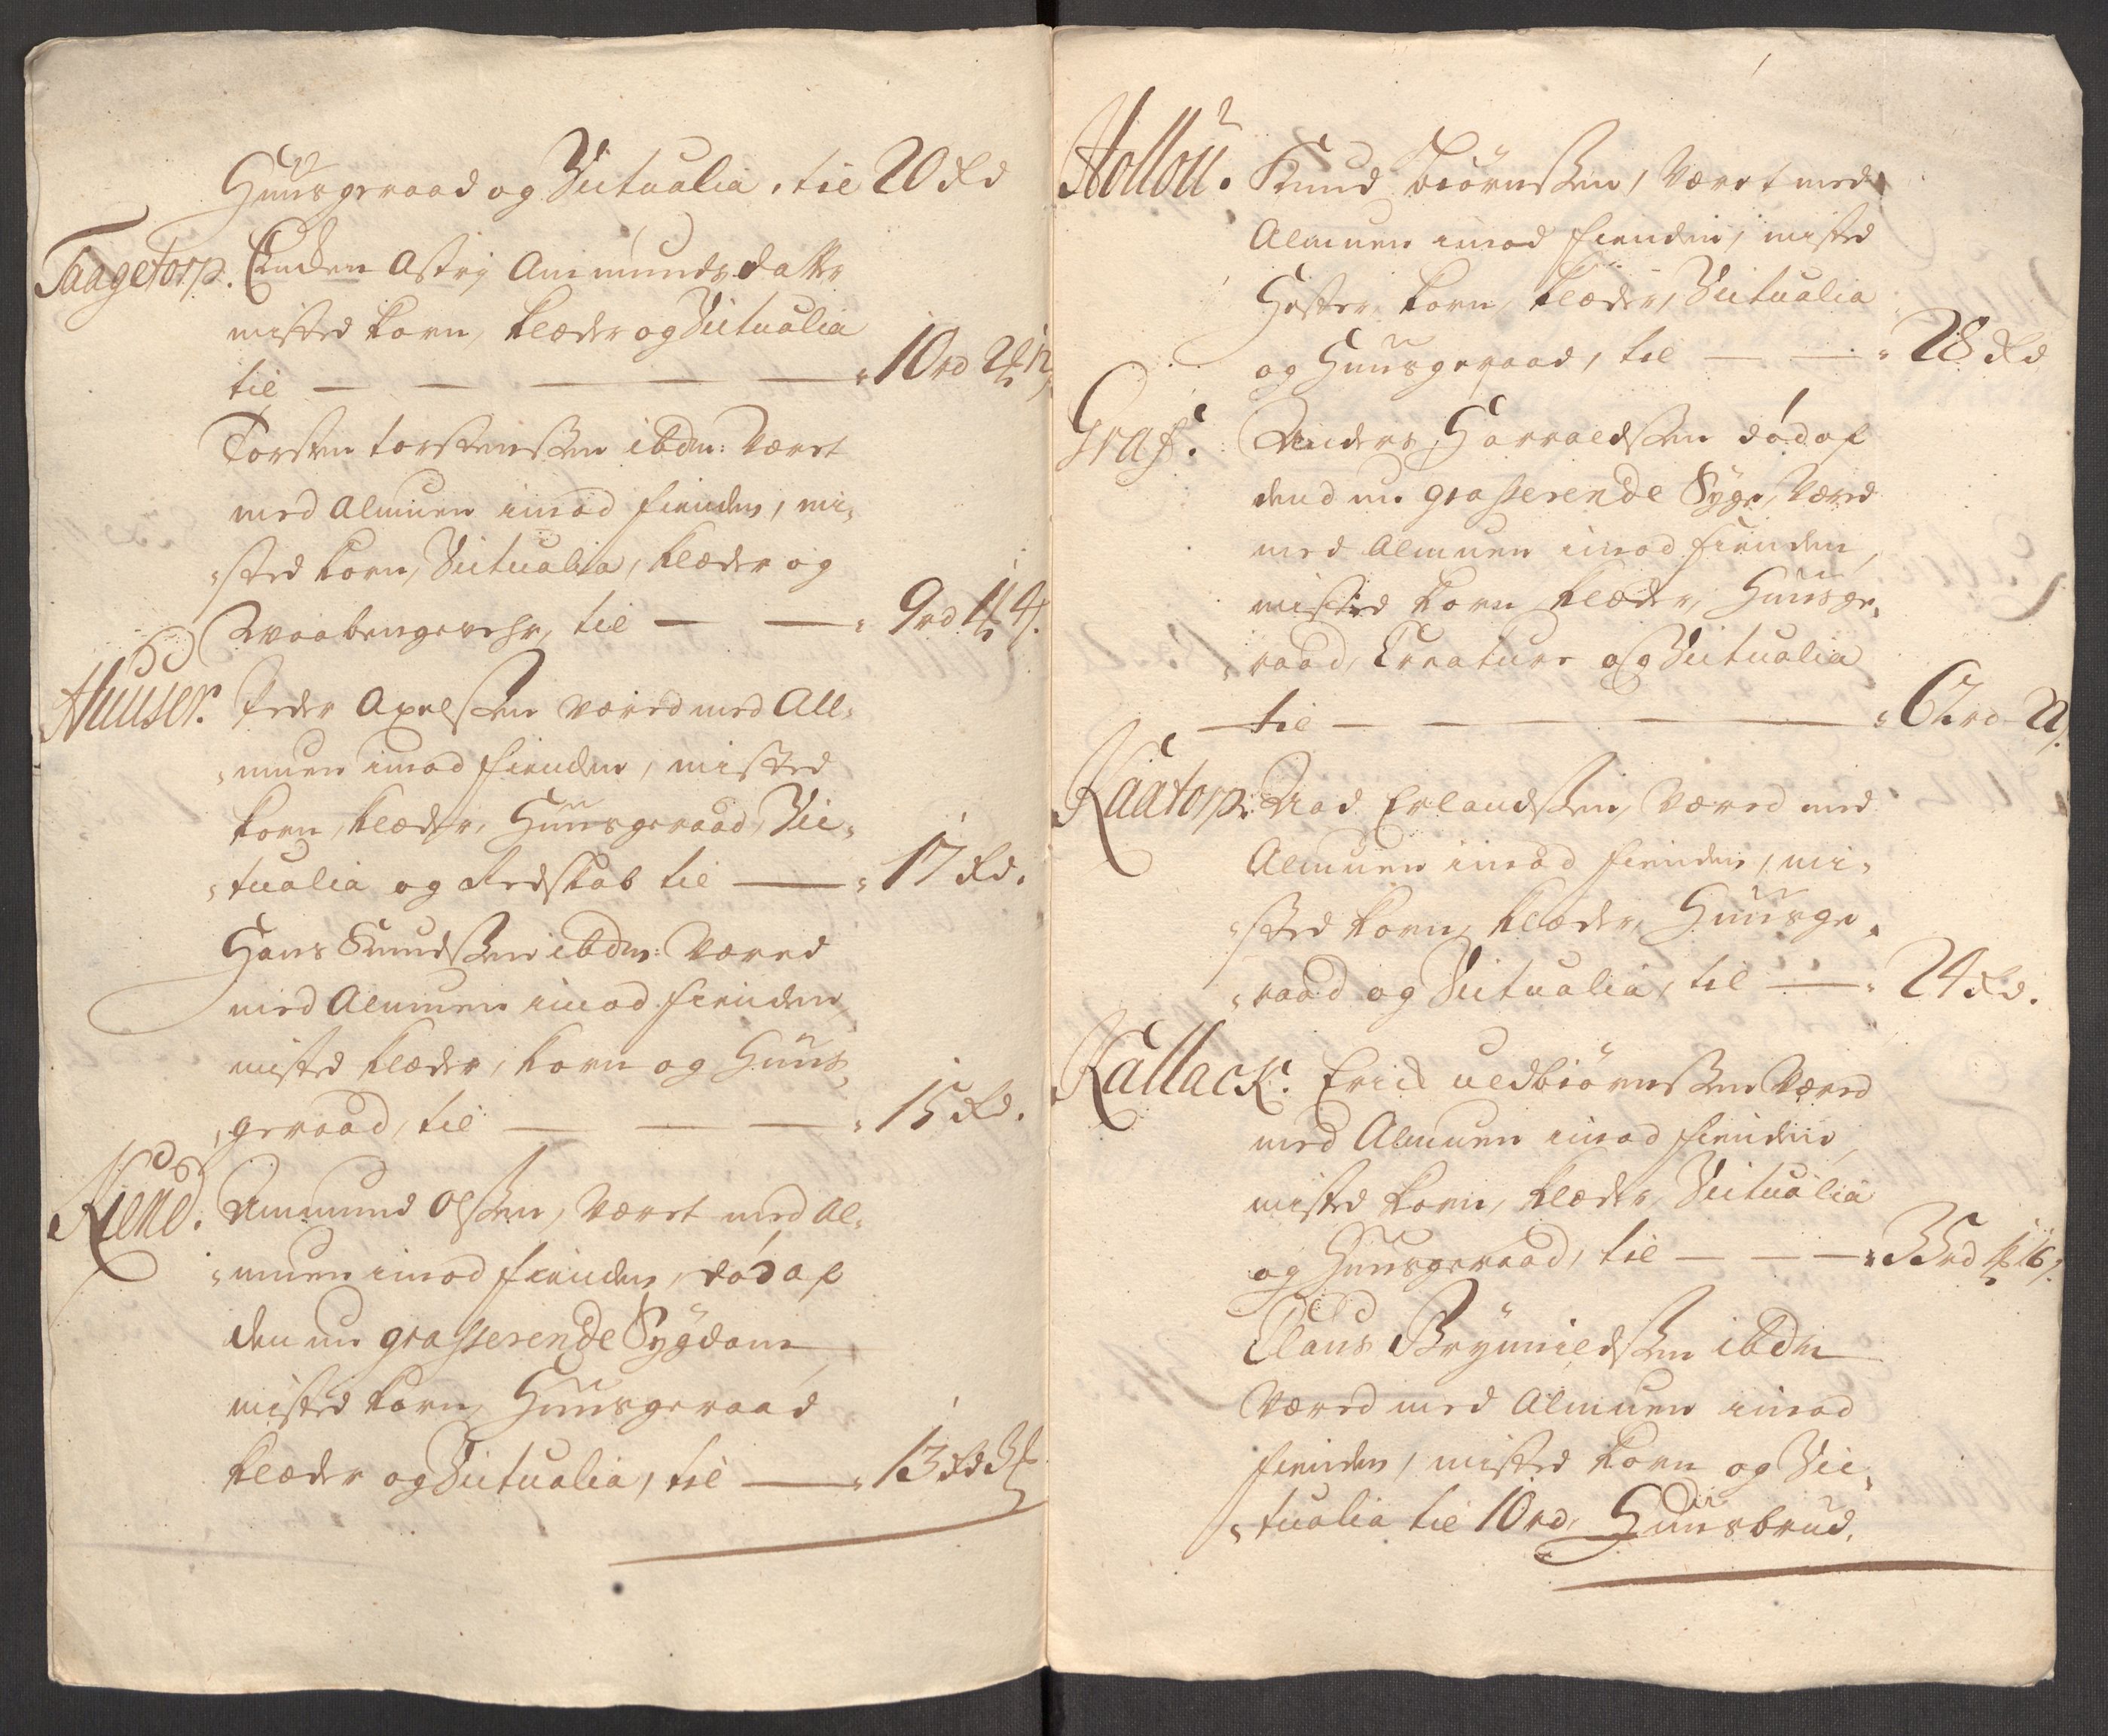 Huusgeraad og Victualia, til 20 Rd
Taagetorp. Encken Astrj Ammunds datter
misted korn, klæder og Victualia
til — — — — — 10 rd 2 12
Torsten torstensen ibdm: Været
med Almuen imod fienden, mi-
sted korn, Victualia, klæder og
Waabengevehr, til — — 9 rd 1 4
Huuser. Peder Axelssen været med All-
muen imod fienden, misted
korn, klæder, Huusgeraad, Vic-
tualia og Redskab til — 17 Rd.
Hans Knudssen ibdm: Været
med Almuen imod fienden,
misted klæder, korn og Huus-
geraad, til — — — 15 Rd.
Kiend. Ammund Olssen, Været med Al-
muen imod fienden, død af
den nu grasserende Sygdom
misted korn, Huusgeraad
klæder og Victualia, til — 13 Rd 3
Hollou. Knud Biörnssen, Været med
Almuen imod fienden, misted
Hester, korn, klæder, Victualia
og Huusgeraad, til — — 28 Rd
Graf. Anders Harraldssen död af
dend nu grasserende Syge, Været
med Almuen imod fienden,
misted korn, klæder, Huusge-
raad, Creature og Victualia
til — — — — 62 rd 22
Kaatorp. Aad Erlandssen, Været med
Almuen imod fienden, mi-
sted korn, klæder, Huusge-
raad og Victualia, til — 24 Rd.
Kallack. Erick uedbiörnssen Været
med Almuen imod fienden,
misted korn, klæder, Victualia
og Huusgeraad, til — — — 35 rd 1 16
Claus Brynnildssen ibdm
Været med Almuen imod
fienden, misted korn og Vic-
tualia til 10 rd, Huusbrud.